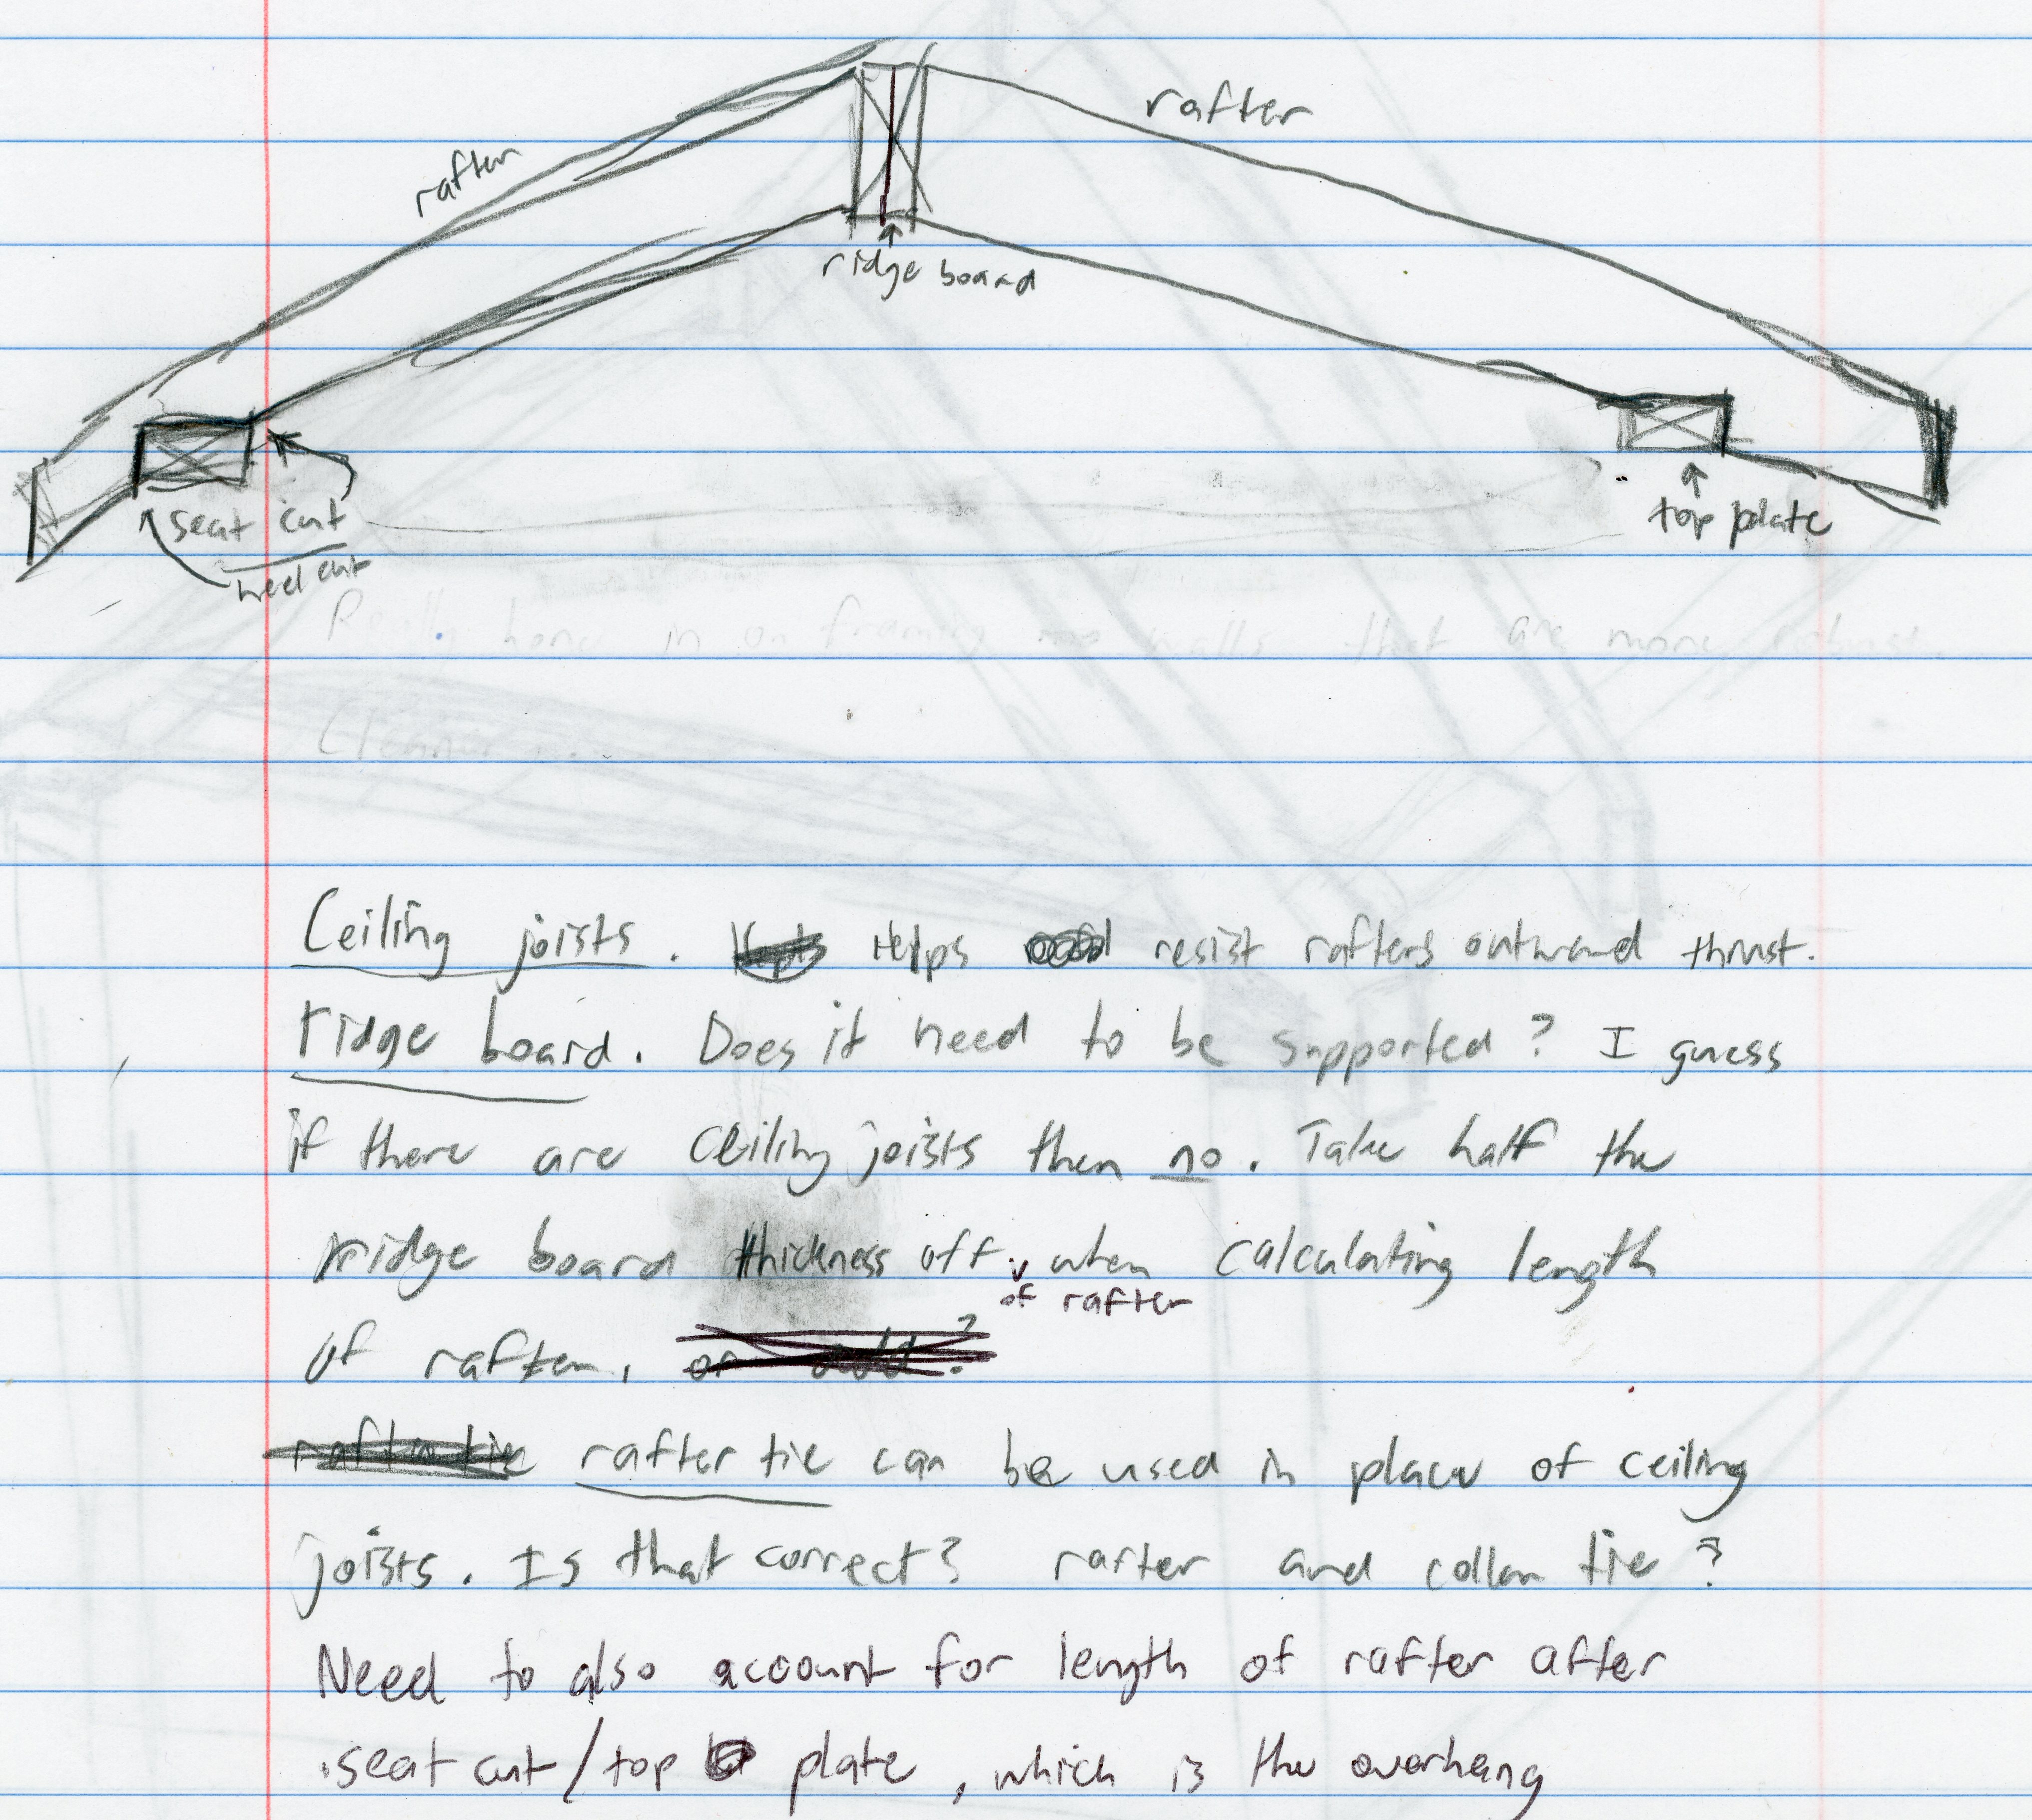 rafter
rafter
ridge board
seat cut
heel cut
top plate
Really hone in on framing walls that are more robust.
Cleaner
Ceiling joists. Helps resist rafters outward thrust.
ridge board. Does it need to be supported? I guess
if there are ceiling joists then no. Take half the
ridge board thickness off when calculating length
of rafter
of rafter,
or add?
rafter tie rafter tie can be used in place of ceiling
joists. Is that correct? rafter and collar tie?
Need to also account for length of rafter after
seat cut/top plate, which is the overhang